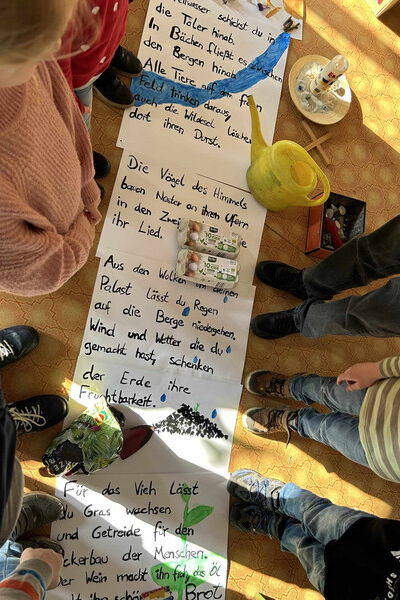 schickst du in
die Täler hinab.
In Bächen fließt es zwischen
den Bergen hinab
Alle Tiere auf
Feld trinken daraus,
auch die Wildesel
dort ihren Durst.
Die Vögel des Himmels
bauen Nester an ihren Ufern
in den
ihr Lied.
Aus den Wolken
Palast lässt du Regen
auf die Berge niedergehen.
Wind und Wetter die du
gemacht hast, schenken
der Erde ihre
Fruchtbarkeit.
Für das Vieh lässt
du Gras wachsen
und Getreide für den
Ackerbau der Menschen.
Der Wein macht ihn froh, das Öl
Brot